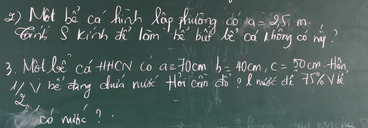 2) Một bể cá hình lập phương có a = 25 m.
Tính S kính để làm bể biết bể cá không có nắp?
3. Một bể cá HHCN có a = 70cm b = 40cm, c = 50cm. Hiện
1/2 V bể đang chứa nước Hỏi cần đổ ? l nước để 75% V bể
có nước?